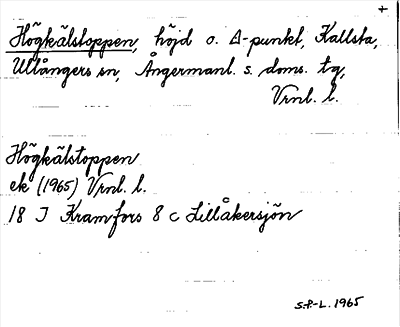 +
Högkälstoppen, höjd o. Δ-punkt, Kallsta,
Ullångers sn, Ångermanl. s. doms. tg,
Vrnl. l.
Högkälstoppen
ek (1965) Vrnl. l.
18 I Kramfors 8 c Lillåkersjön
S.P-L. 1965